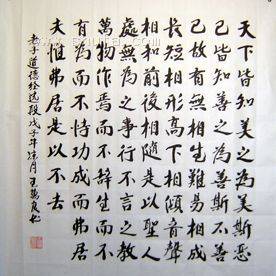 天下皆知美之為美斯惡
已皆知善之為善斯不善
已故有無相生難易相成
長短相形高下相傾音聲
相和前後相隨是以聖人
處無為之事行不言之教
萬物作焉而不辭生而不
有為而不恃功成而弗居
夫惟弗居是以不去
老子道德经选段戊子年涂月王